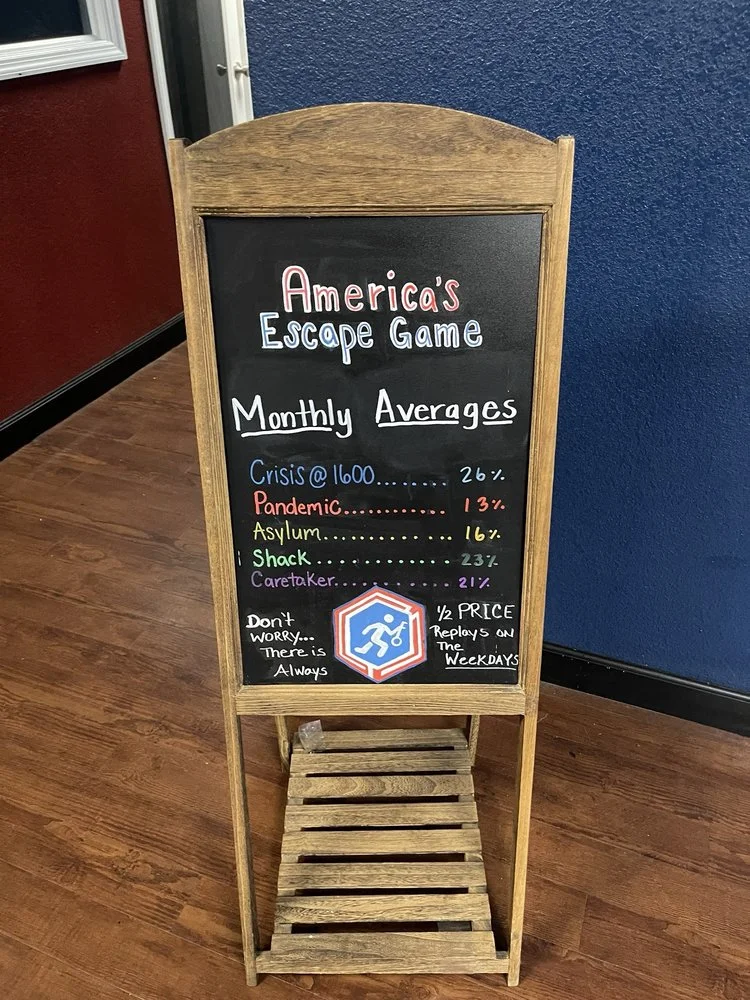 America's
Escape Game
Monthly Averages
Crisis @ 1600........ 26%
Pandemic............ 13%
Asylum.............. 16%
Shack.............. 23%
Caretaker............ 21%
Don't
WORRY...
There is
Always
1/2 PRICE
Replays on
The
WeekDAYS